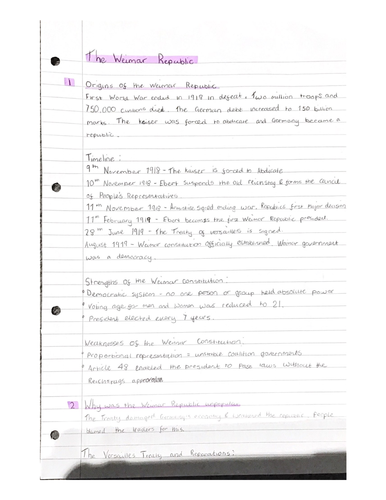 The Weimar Republic
1 Origins of the Weimar Republic
First World War ended in 1918 in defeat. Two million troops and
750,000 civilians died. The German debt increased to 150 billion
marks. The kaiser was forced to abdicate and Germany became a
republic.
Timeline:
9th November 1918 - The kaiser is forced to abdicate
10th November 1918 - Ebert suspends the old Reichstag & forms the Council
of People's Representatives
11th November 1918 - Armistice signed ending war. Republic's first major decision
11th February 1919 - Ebert becomes the first Weimar Republic president
28th June 1919 - The Treaty of Versailles is signed
August 1919 - Weimar constitution officially established. Weimar government
was a democracy.
Strengths of the Weimar Constitution:
Democratic system - no one person or group held absolute power
Voting age for men and women was reduced to 21.
President elected every 7 years.
Weaknesses of the Weimar Constitution
Proportional representation = unstable coalition governments
Article 48 enabled the president to pass laws without the
Reichstags
2 Why was the Weimar Republic unpopular
The Treaty damaged Germany's economy & the republic. People
blamed the leaders for this.
The Versailles Treaty and Reparations: